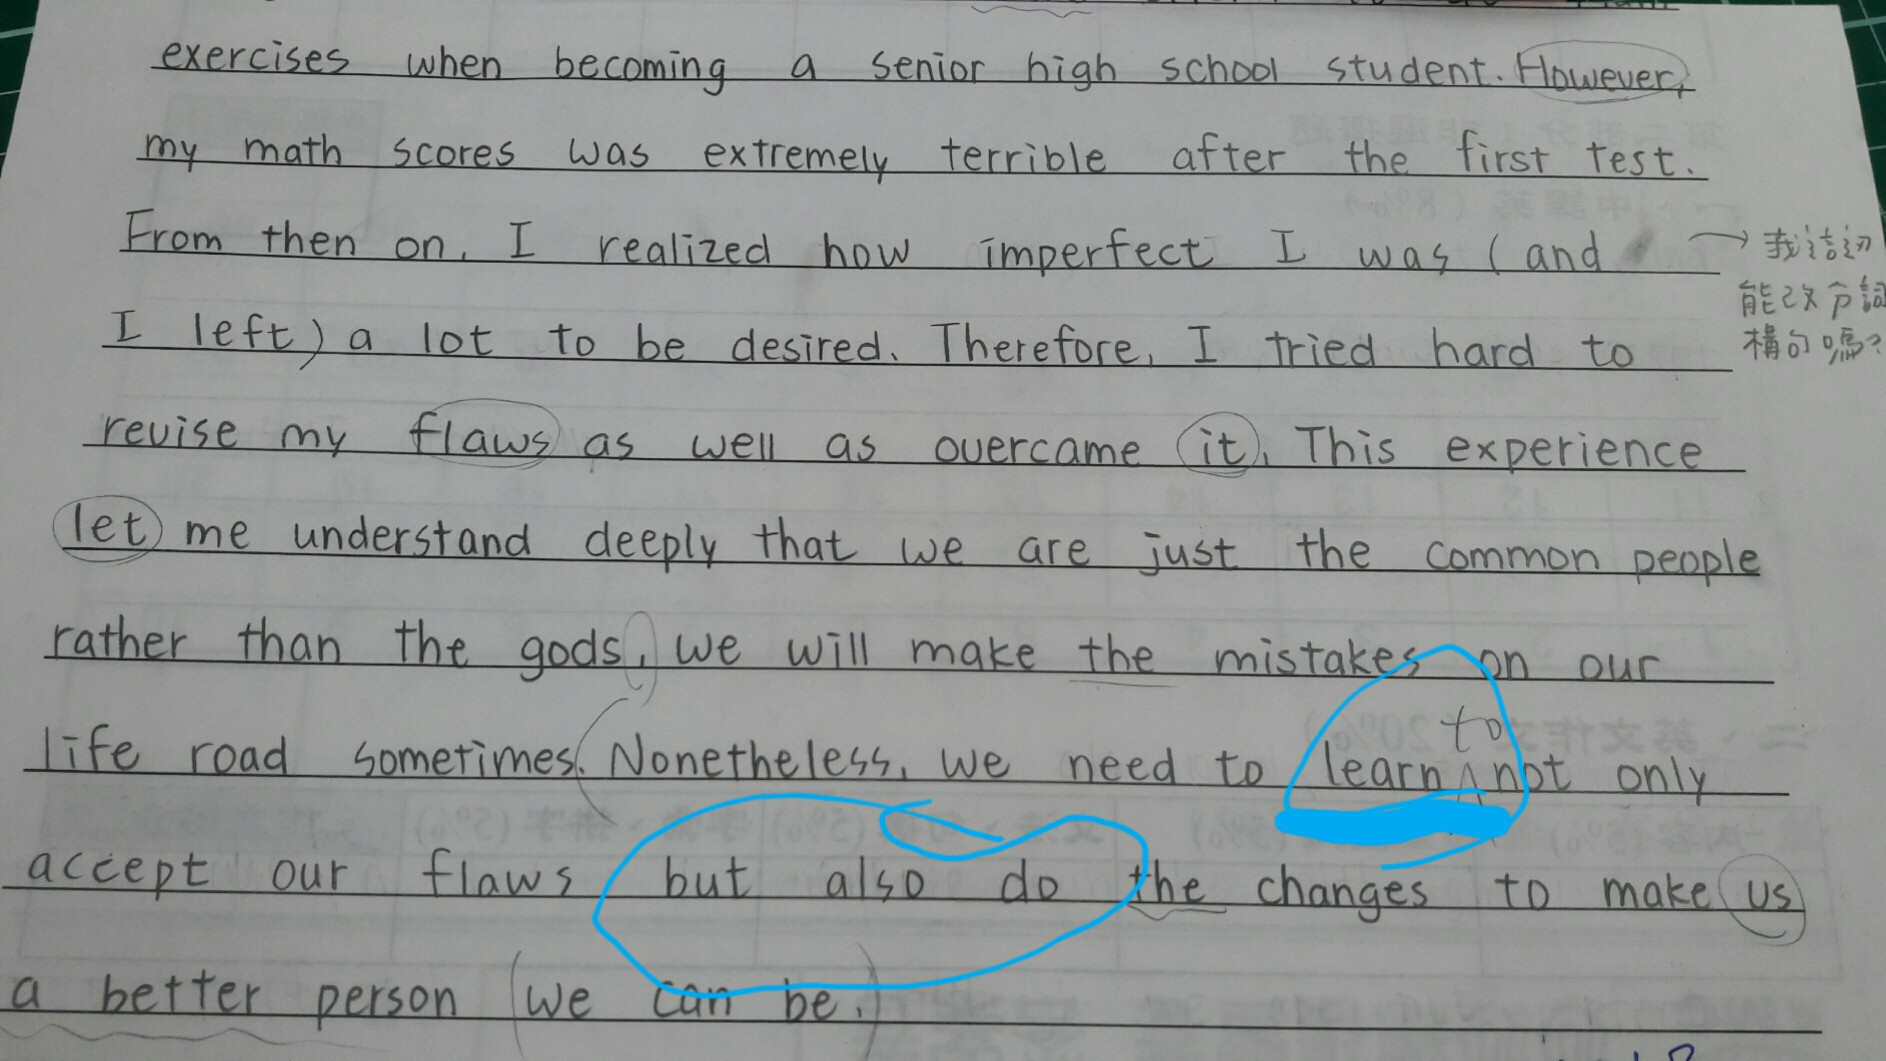 exercises when becoming a senior high school student. However,
my math scores was extremely terrible after the first test.
From then on, I realized how imperfect I was (and
I left) a lot to be desired. Therefore, I tried hard to
revise my flaws as well as overcame it. This experience
let me understand deeply that we are just the common people
rather than the gods, we will make the mistakes on our
life road sometimes. Nonetheless, we need to learn to not only
accept our flaws but also do the changes to make us
a better person (we can be.)
能改分詞
構句嗎?